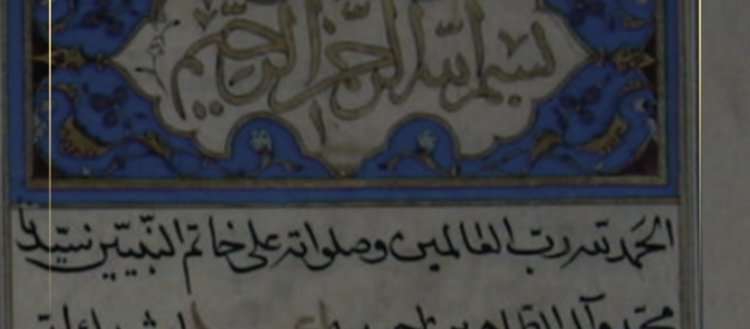 بسم الله الرحمن الرحيم
الحمد لله رب العالمين وصلواته على خاتم النبيين سيدنا
محمد وآله الطاهرين